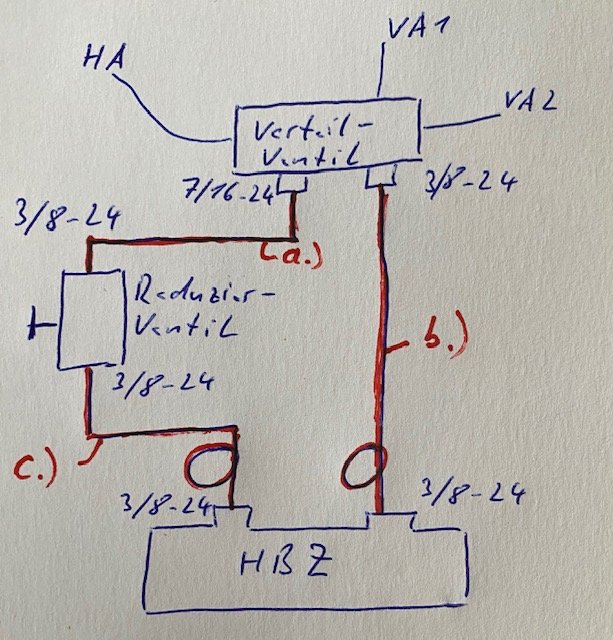 VA1
HA
VA2
Verteil-
Ventil
7/16-24
3/8-24
3/8-24
a.)
Reduzier-
Ventil
b.)
3/8-24
c.)
3/8-24
3/8-24
HBZ